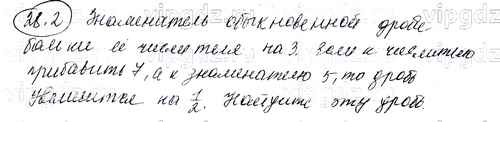 38.2 Знаменатель обыкновенной дроби
больше её числителя на 3. Если к числителю
прибавить 7, а к знаменателю 5, то дробь
увеличится на 1/2. Найдите эту дробь.